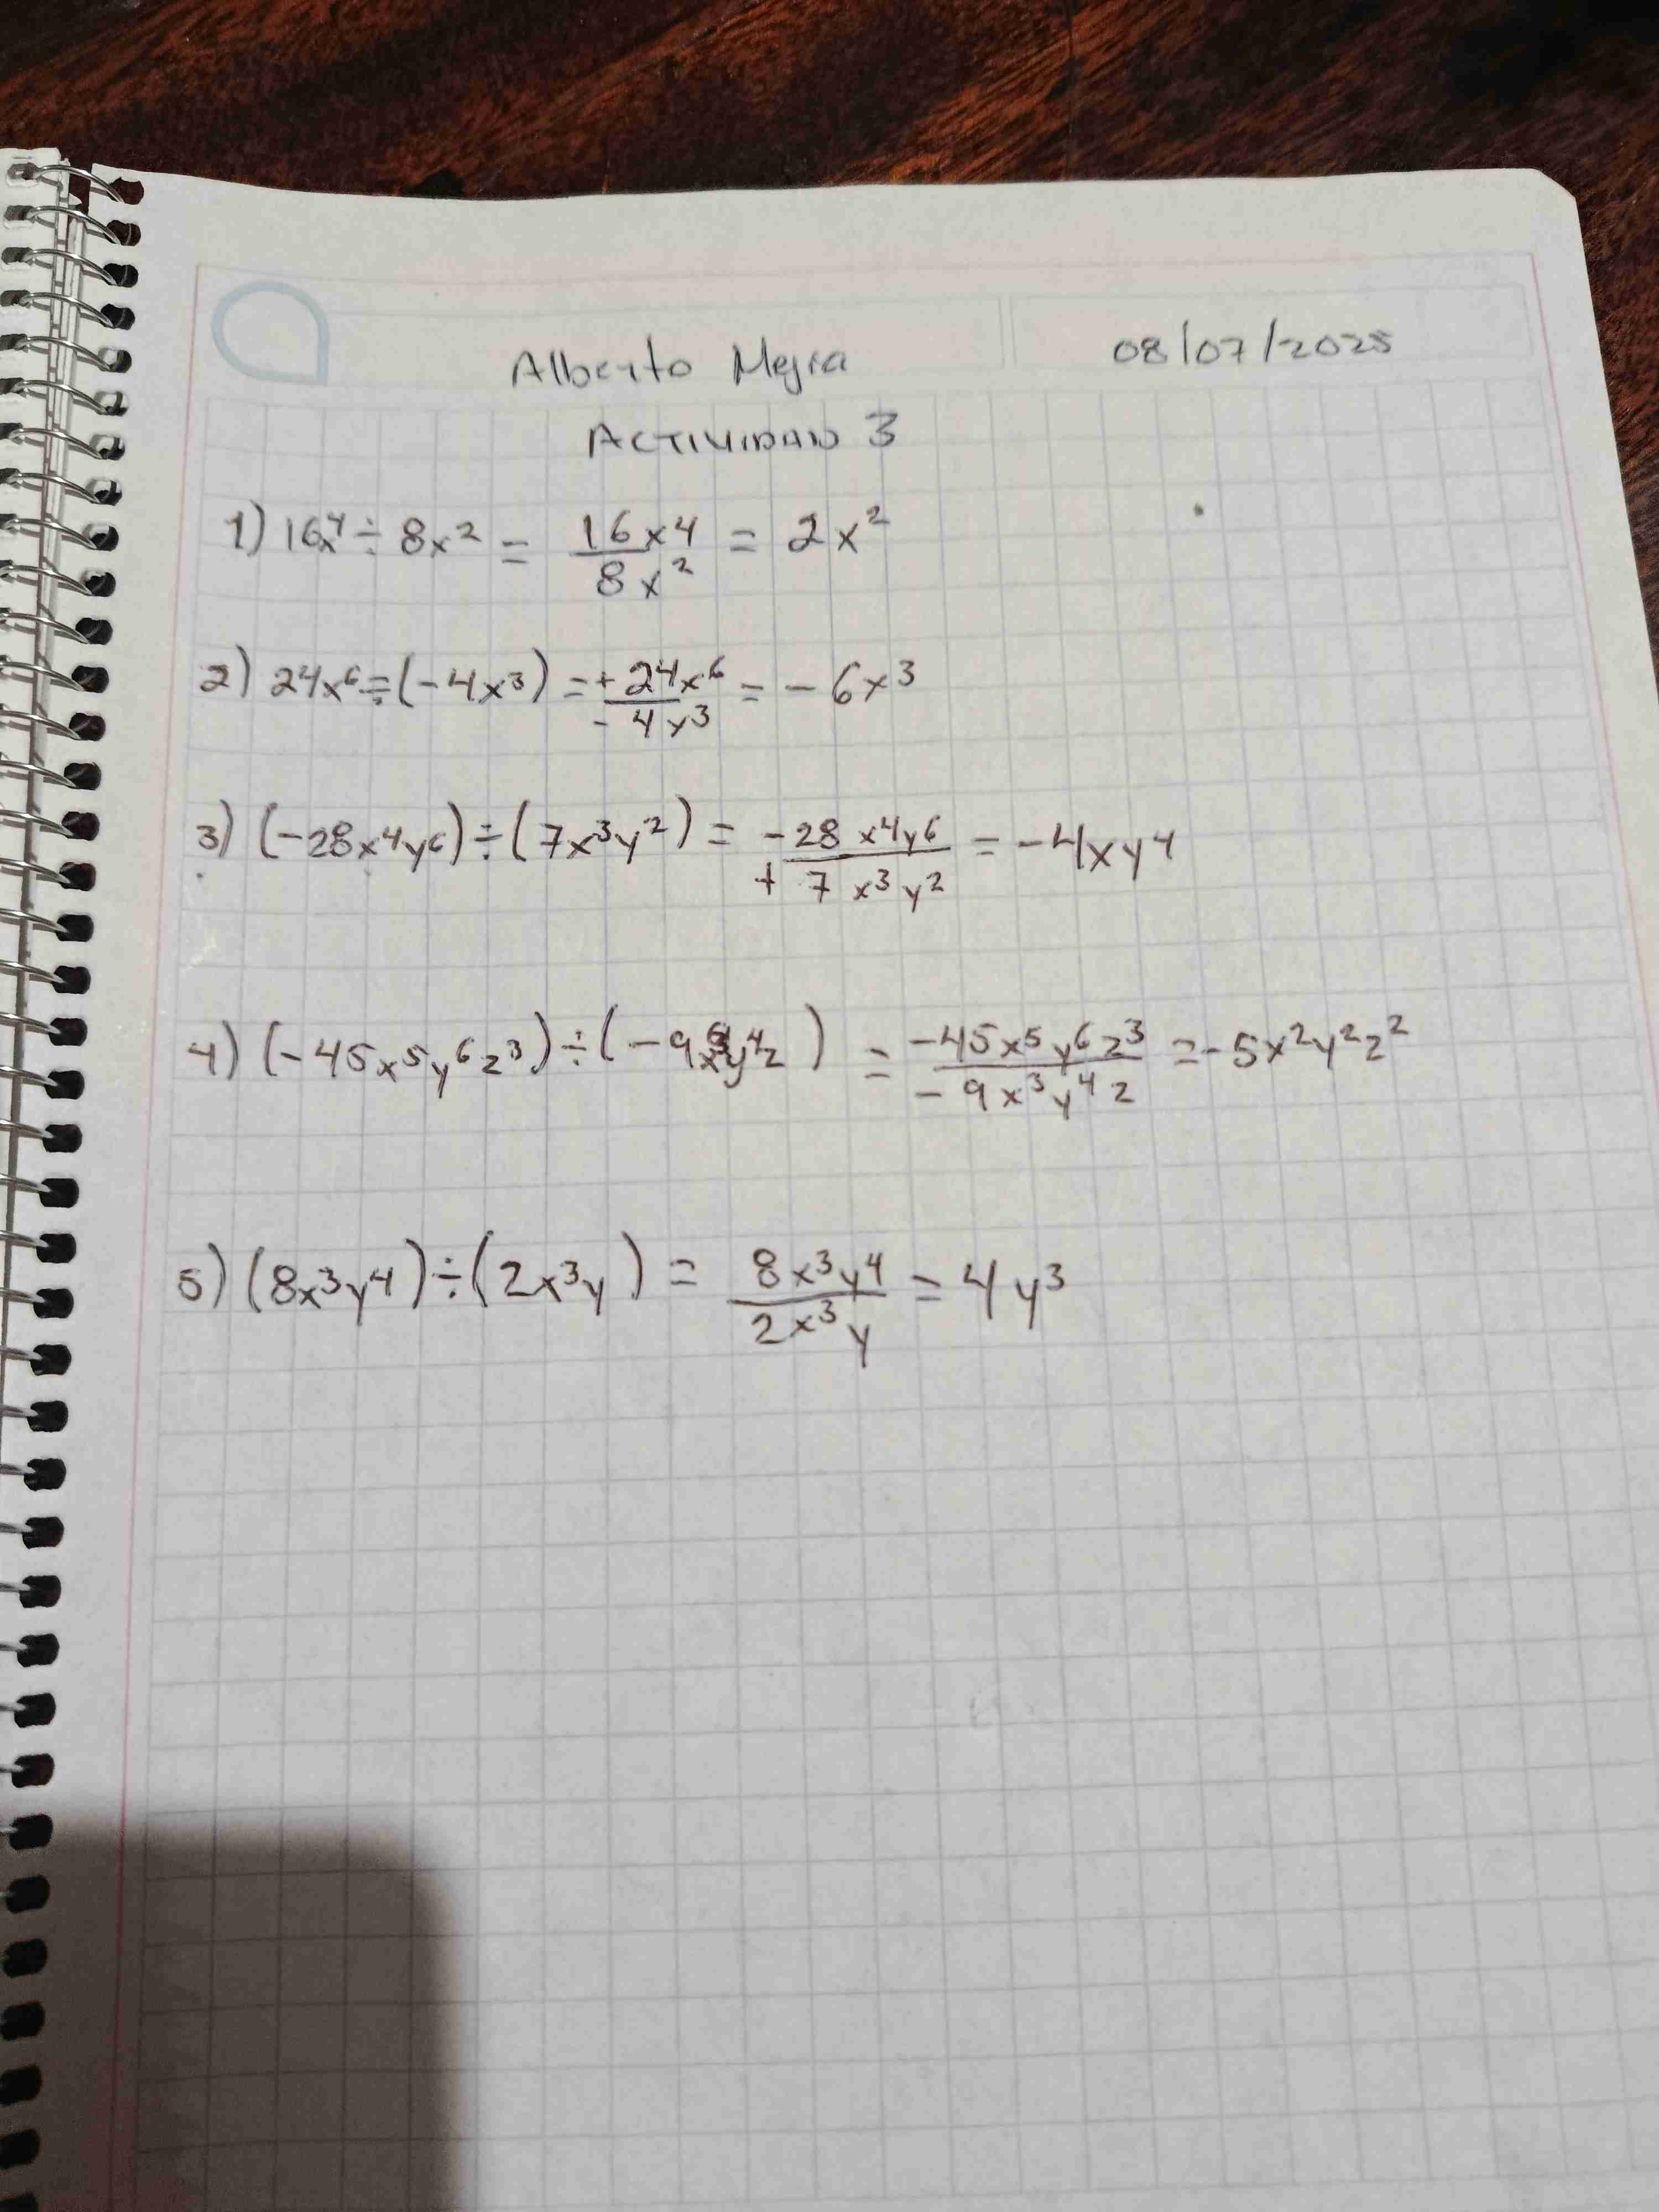 Alberto Mejia 08/07/2025
ACTIVIDAD 3
1) 16x⁴ ÷ 8x² = 16x4 / 8x² = 2x²
2) 24x⁶ ÷ (-4x³) = + 24x⁶ / - 4x³ = - 6x³
3) (-28x⁴y⁶) ÷ (7x³y²) = - 28 x⁴y⁶ / + 7 x³y² = -4xy⁴
4) (-45x⁵y⁶z³) ÷ (-9x³y⁴z) = -45x⁵y⁶z³ / - 9x³y⁴z = - 5x²y²z²
5) (8x³y⁴) ÷ (2x³y) = 8x³y⁴ / 2x³y = 4y³